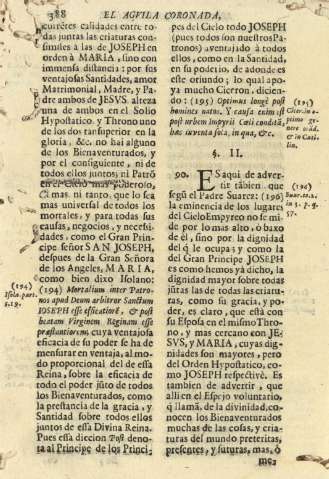 388 EL AGVILA CORONADA,
currẽtes calidades entre to-
das juntas las criaturas con-
similes à las de JOSEPH en
orden à MARIA, sino con
immensa distancia: por sus
ventajosas Santidades, amor
Matrimonial, Madre, y Pa-
dre ambos de JESVS. alteza
una de ambos en el Solio
Hypostatico. y Throno uno
de los dos tan superior en la
gloria, &c. no hai alguno
de los Bienaventurados, y
por el consiguiente, ni de
todos ellos juntos, ni Patrõ
en el Cielo mas poderoso,
ni mas, ni tanto, que lo sea
mas universal de todos los
mortales, y para todas sus
causas, negocios, y necesi-
dades, como el Gran Prin-
cipe señor SAN JOSEPH,
despues de la Gran Señora
de los Angeles, MARIA,
como bien dixo Isolano:
(194)
Isola. part.
(194) Mortalium inter Patro-
nos apud Deum arbitror Sanctum
IOSEPH esse efficatiorẽ, & post
beatam Virginem Reginam esse
præstantiorem: cuya ventajosa
eficacia de su poder se ha de
mensurar en ventaja, al mo-
do proporcional del de essa
Reina, sobre la eficacia de
todo el poder jũto de todos
los Bienaventurados, como
la prestancia de la gracia, y
Santidad sobre todos ellos
juntos de essa Divina Reina.
Pues essa diccion Post deno-
ta al Principe de los Princi-
pes del Cielo todo JOSEPH
(pues todos son nuestros Pa-
tronos) aventajado à todos
ellos, como en la Santidad,
en su poderio, de adonde es
este oriundo; lo qual apo-
ya mucho Cicerón, dicien-
(195)
do: (195) Optimus longè post
homines natus. Y causa enim est
post urbem insignis Cœli conditã,
hac iuventa sola, in qua, &c.
§. II.
90. ES aqui de adver-
tir tãbien, que
segũ el Padre Suarez: (196)
(196)
la eminencia de los lugares
del Cielo Empyreo no se mi-
de por lo mas alto, ò baxo
de èl, sino por la dignidad
del q̃ le ocupa: y como la
del Gran Principe JOSEPH
es como hemos yà dicho, la
dignidad mayor sobre todas
jũtas las de todas las criatu-
ras, como su gracia, y po-
der, es claro, que està con
su Esposa en el mismo Thro-
no, y mas cercano con JE-
SVS, y MARIA, cuyas dig-
nidades son mayores, pero
del Orden Hypostatico, co-
mo JOSEPH respectivè. Es
tambien de advertir, que
alli en el Espejo voluntario,
q̃ llamã, de la divinidad, co-
nocen los Bienaventurados
muchas de las cosas, y cria-
turas del mundo preteritas,
presentes, y futuras, mas, ò
me-